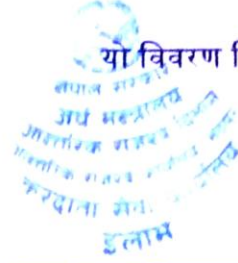 यो विवरण
नेपाल सरकार
अर्थ मन्त्रालय
आन्तरिक राजस्व विभाग
आन्तरिक राजस्व कार्यालय
करदाता सेवा
इलाम